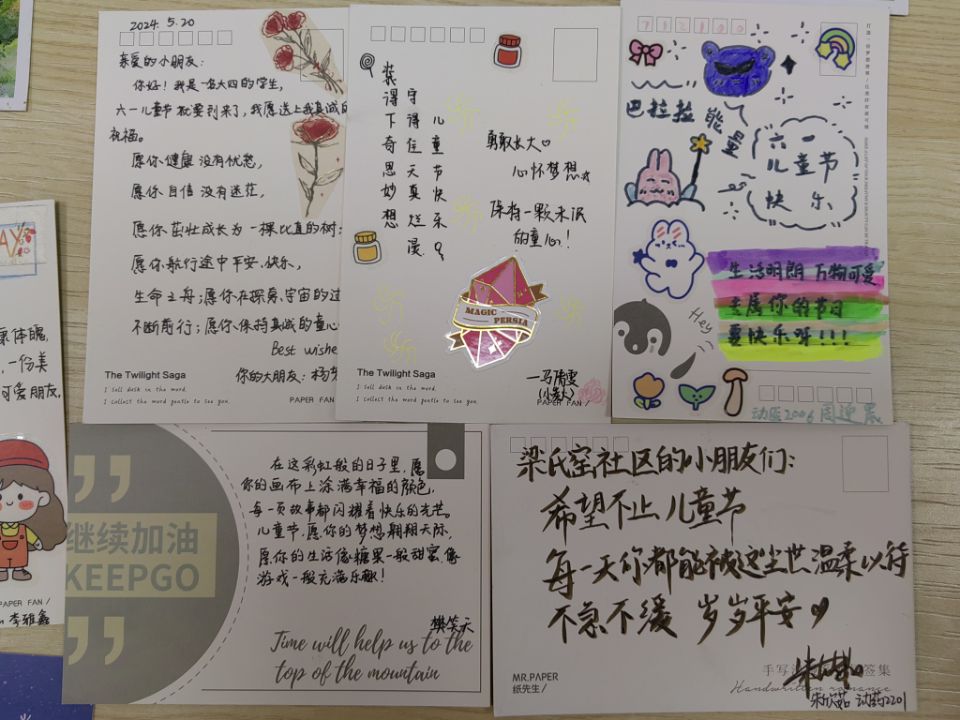 2024. 5.20
亲爱的小朋友：
你好！我是一名大四的学生，
六一儿童节就要到来了，我愿送上我真诚的
祝福。
愿你健康 没有忧愁，
愿你自信 没有迷茫，
愿你茁壮成长为一棵比直的树；
愿你航行途中平安、快乐，
生命之舟；愿你在探索宇宙的过
不断前行；愿你保持真诚的童心
Best wishe
你的大朋友：杨
The Twilight Saga
I sell dusk in the word.
I collect the word gentle to see you.
PAPER FAN /
装得下奇思妙想
守得住天真烂漫
儿童节快乐
勇敢长大
心怀梦想
保持一颗未泯
的童心！
MAGIC
PERSIA
The Twilight Saga
I sell dusk in the word.
I collect the word gentle to see you.
(小麦大)
PAPER FAN /
巴拉拉能量
六一
儿童节
快 乐
生活明朗 万物可爱
去属你的节日
要快乐呀！！！
Hey
康体魄，
一份美
可爱朋友，
PAPER FAN /
李雅鑫
继续加油
KEEPGO
在这彩虹般的日子里，愿
你的画布上涂满幸福的颜色，
每一页故事都闪耀着快乐的光芒。
儿童节，愿你的梦想翱翔天际，
愿你的生活像糖果一般甜蜜，像
游戏一般充满乐趣！
樊笑天
Time will help us to the
top of the mountain
梁氏窑社区的小朋友们：
希望不止儿童节
每一天你都能被这尘世温柔以待
不急不缓 岁岁平安
MR.PAPER
纸先生/
手写
签集
Handwritten romance
朱欣茹
2201